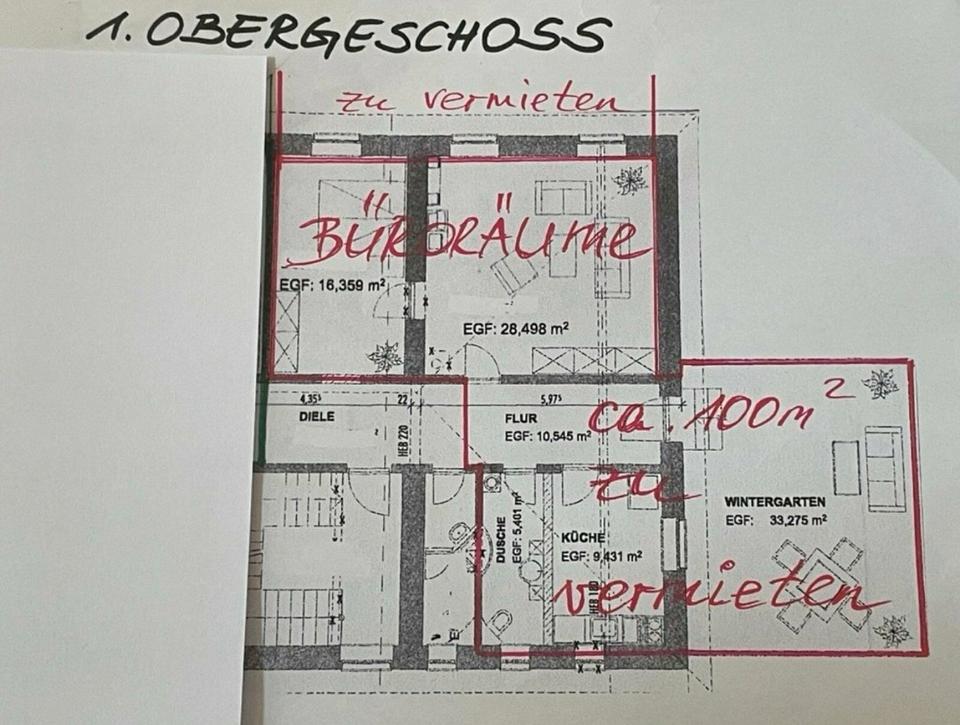 1. OBERGESCHOSS
zu vermieten
BÜRORÄUme
EGF: 16,359 m²
EGF: 28,498 m²
4,35⁵ 22 5,97⁵
DIELE
FLUR
EGF: 10,545 m²
ca. 100m²
HEB 220
zu
WINTERGARTEN
EGF: 33,275 m²
DUSCHE
EGF: 5,401 m²
KÜCHE
EGF: 9,431 m²
HEB 180
vermieten